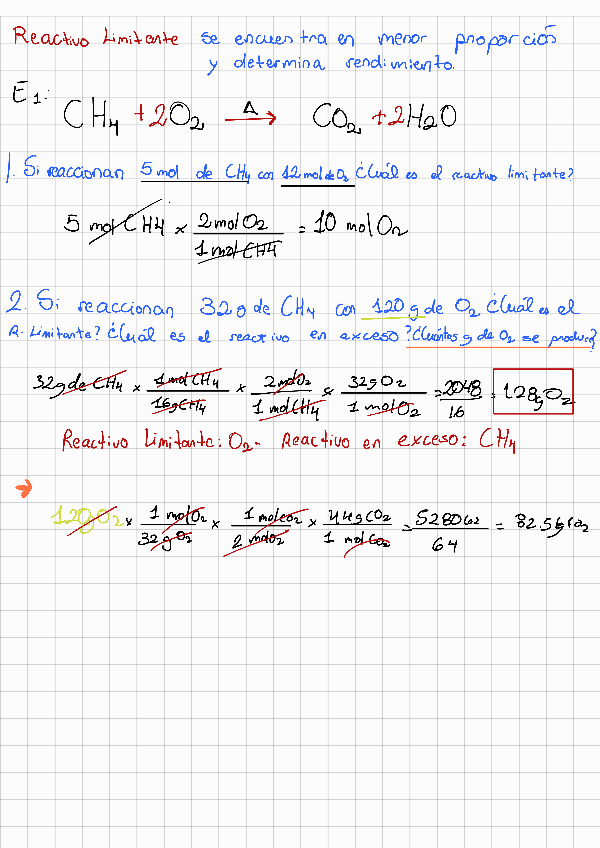 Reactivo Limitante se encuentra en menor proporción
y determina rendimiento.
E1:
CH4 +2O2 Δ→ CO2 +2H2O
1. Si reaccionan 5 mol de CH4 con 12 mol de O2 ¿Cuál es el reactivo limitante?
5 mol CH4 x 2 mol O2 / 1 mol CH4 = 10 mol O2
2. Si reaccionan 32g de CH4 con 120 g de O2 ¿Cuál es el
R. Limitante? ¿Cuál es el reactivo en exceso? ¿Cuántos g de O2 se produce?
32g de CH4 x 1 mol CH4 / 16g CH4 x 2 mol O2 / 1 mol CH4 x 32g O2 / 1 mol O2 = 2048 / 16 = 128g O2
Reactivo Limitante: O2- Reactivo en exceso: CH4
→
120g O2 x 1 mol O2 / 32g O2 x 1 mol CO2 / 2 mol O2 x 44g CO2 / 1 mol CO2 = 5280 / 64 = 82.5g CO2